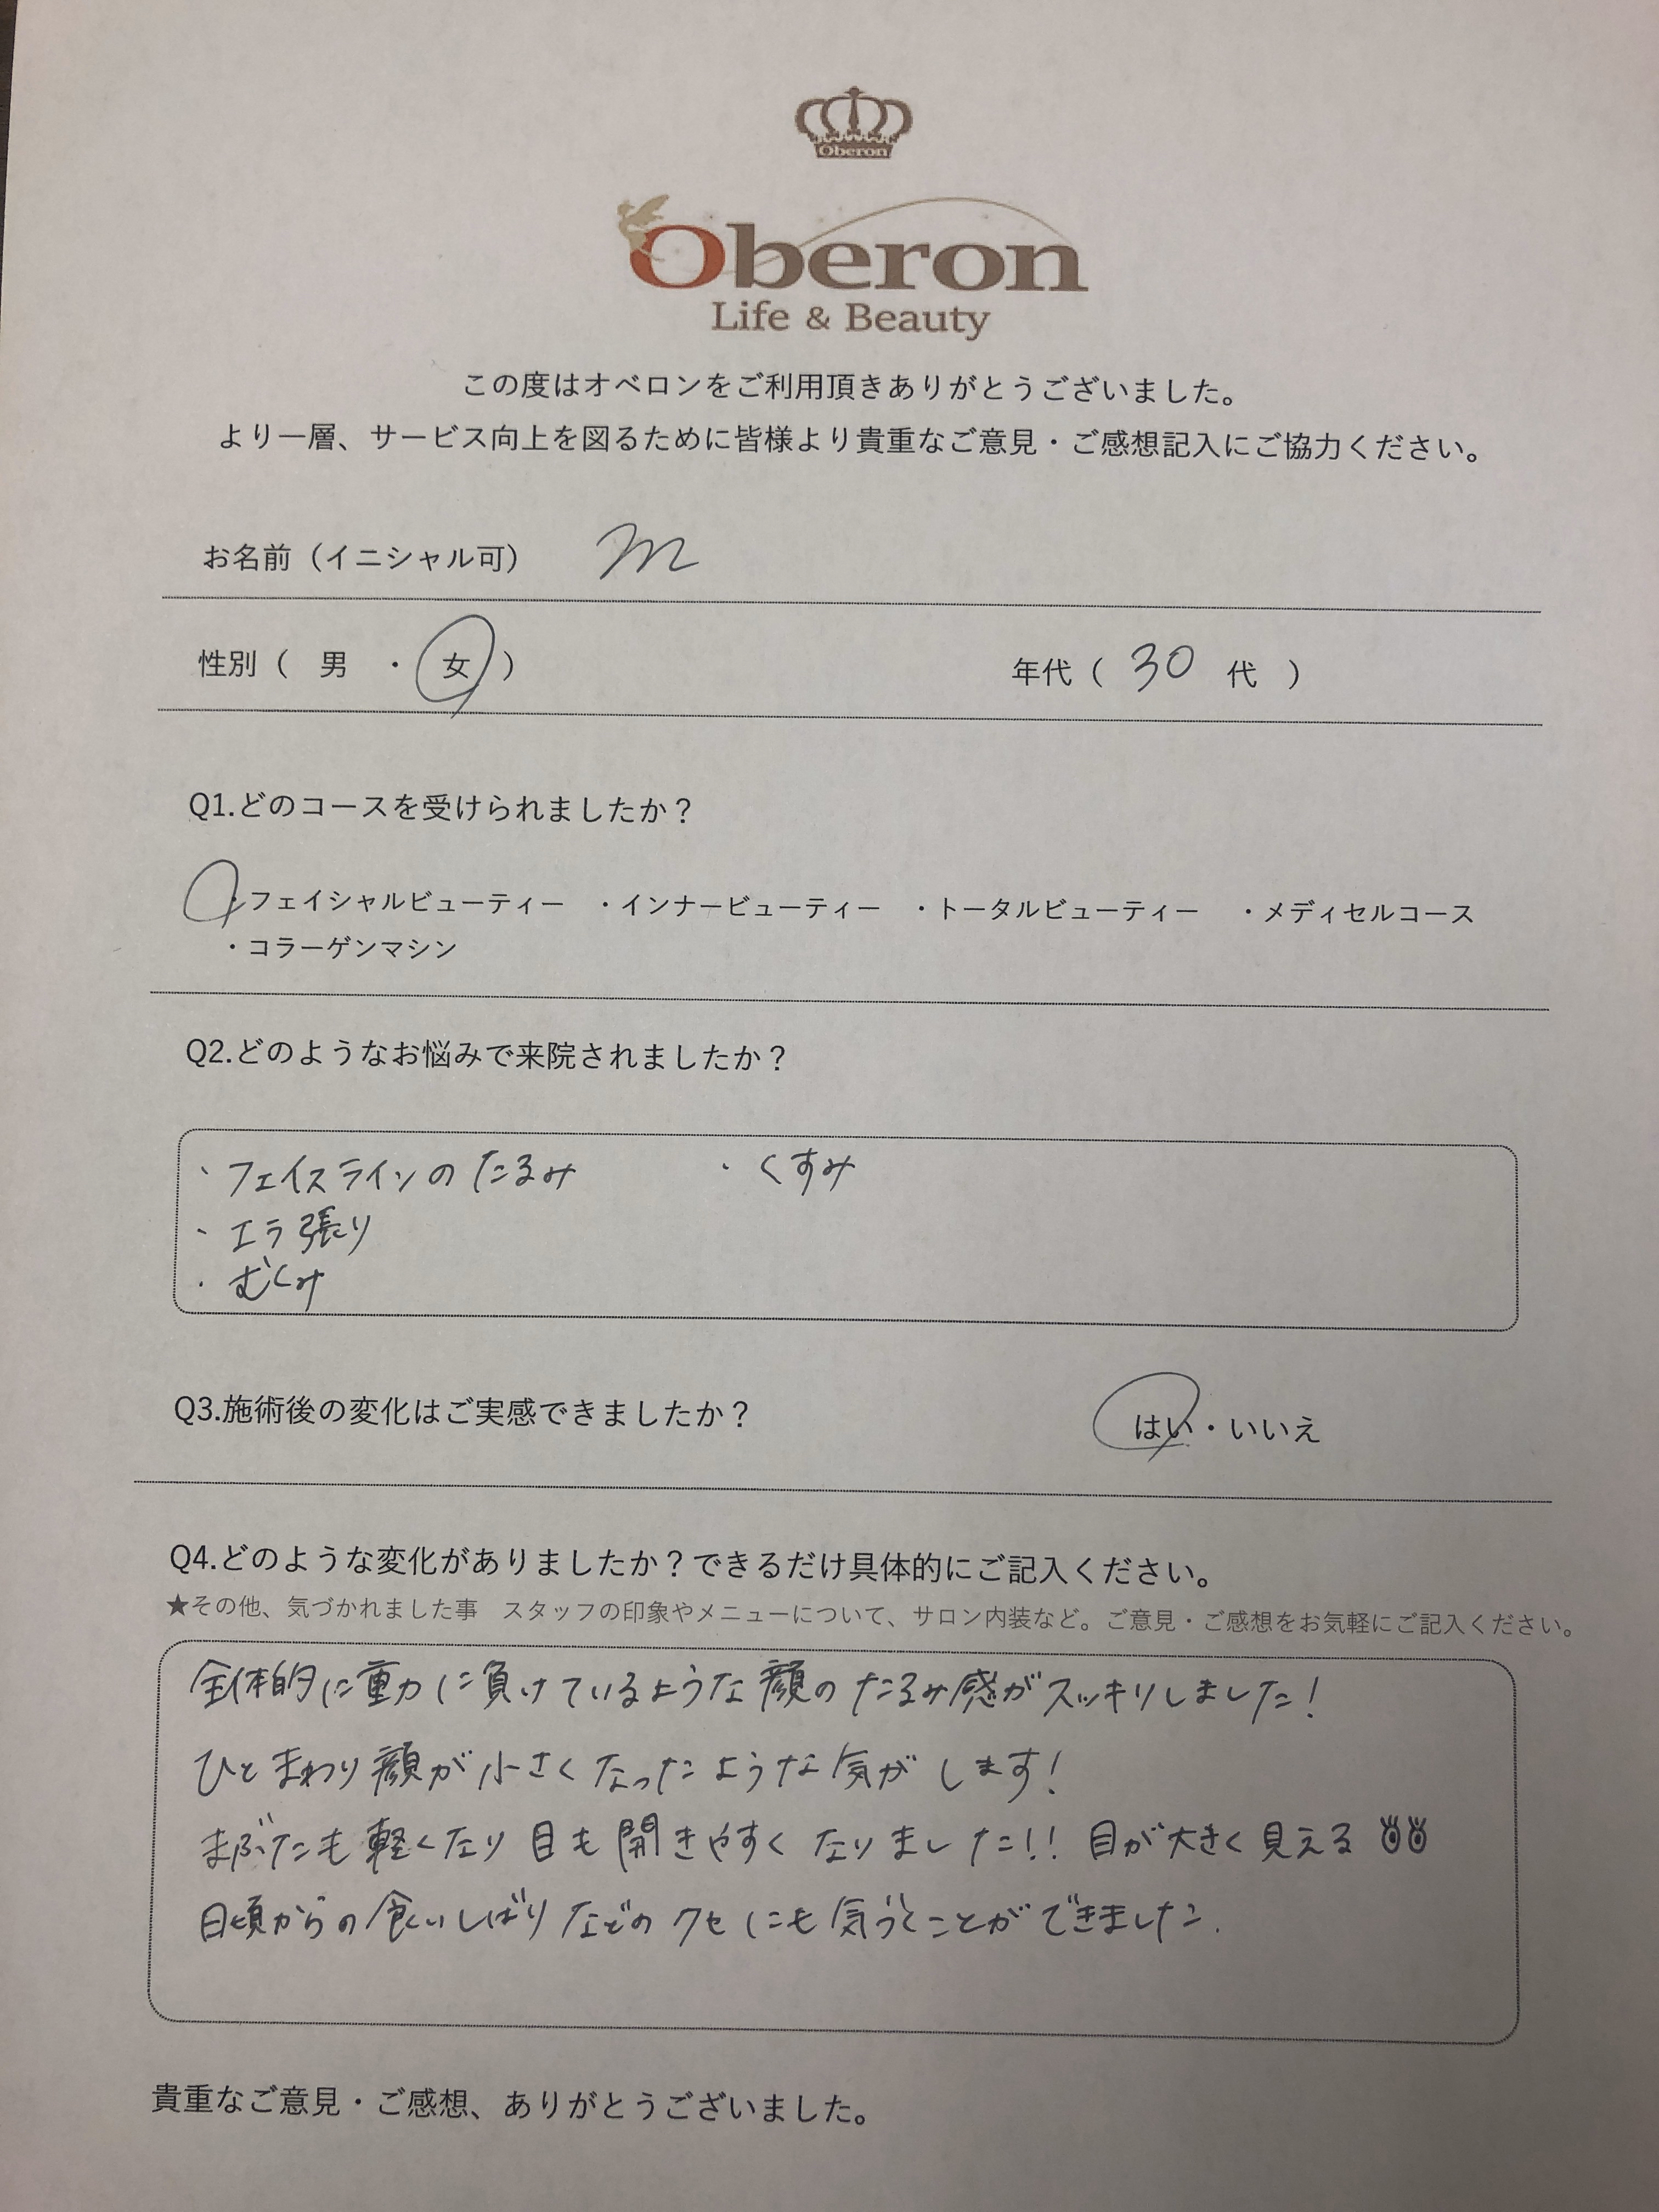 Oberon
Oberon
Life & Beauty
この度はオベロンをご利用頂きありがとうございました。
より一層、サービス向上を図るために皆様より貴重なご意見・ご感想記入にご協力ください。
お名前（イニシャル可） m
性別（ 男 ・ 女 ） 年代（ 30 代 ）
Q1.どのコースを受けられましたか？
・フェイシャルビューティー ・インナービューティー ・トータルビューティー ・メディセルコース
・コラーゲンマシン
Q2.どのようなお悩みで来院されましたか？
・フェイスラインのたるみ ・くすみ
・エラ張り
・むくみ
Q3.施術後の変化はご実感できましたか？ はい・いいえ
Q4.どのような変化がありましたか？できるだけ具体的にご記入ください。
★その他、気づかれました事 スタッフの印象やメニューについて、サロン内装など。ご意見・ご感想をお気軽にご記入ください。
全体的に重力に負けているような顔のたるみ感がスッキリしました！
ひとまわり顔が小さくなったような気がします！
まぶたも軽くなり目も開きやすくなりました!! 目が大きく見える
日頃からの食いしばりなどのクセにも気づくことができました.
貴重なご意見・ご感想、ありがとうございました。